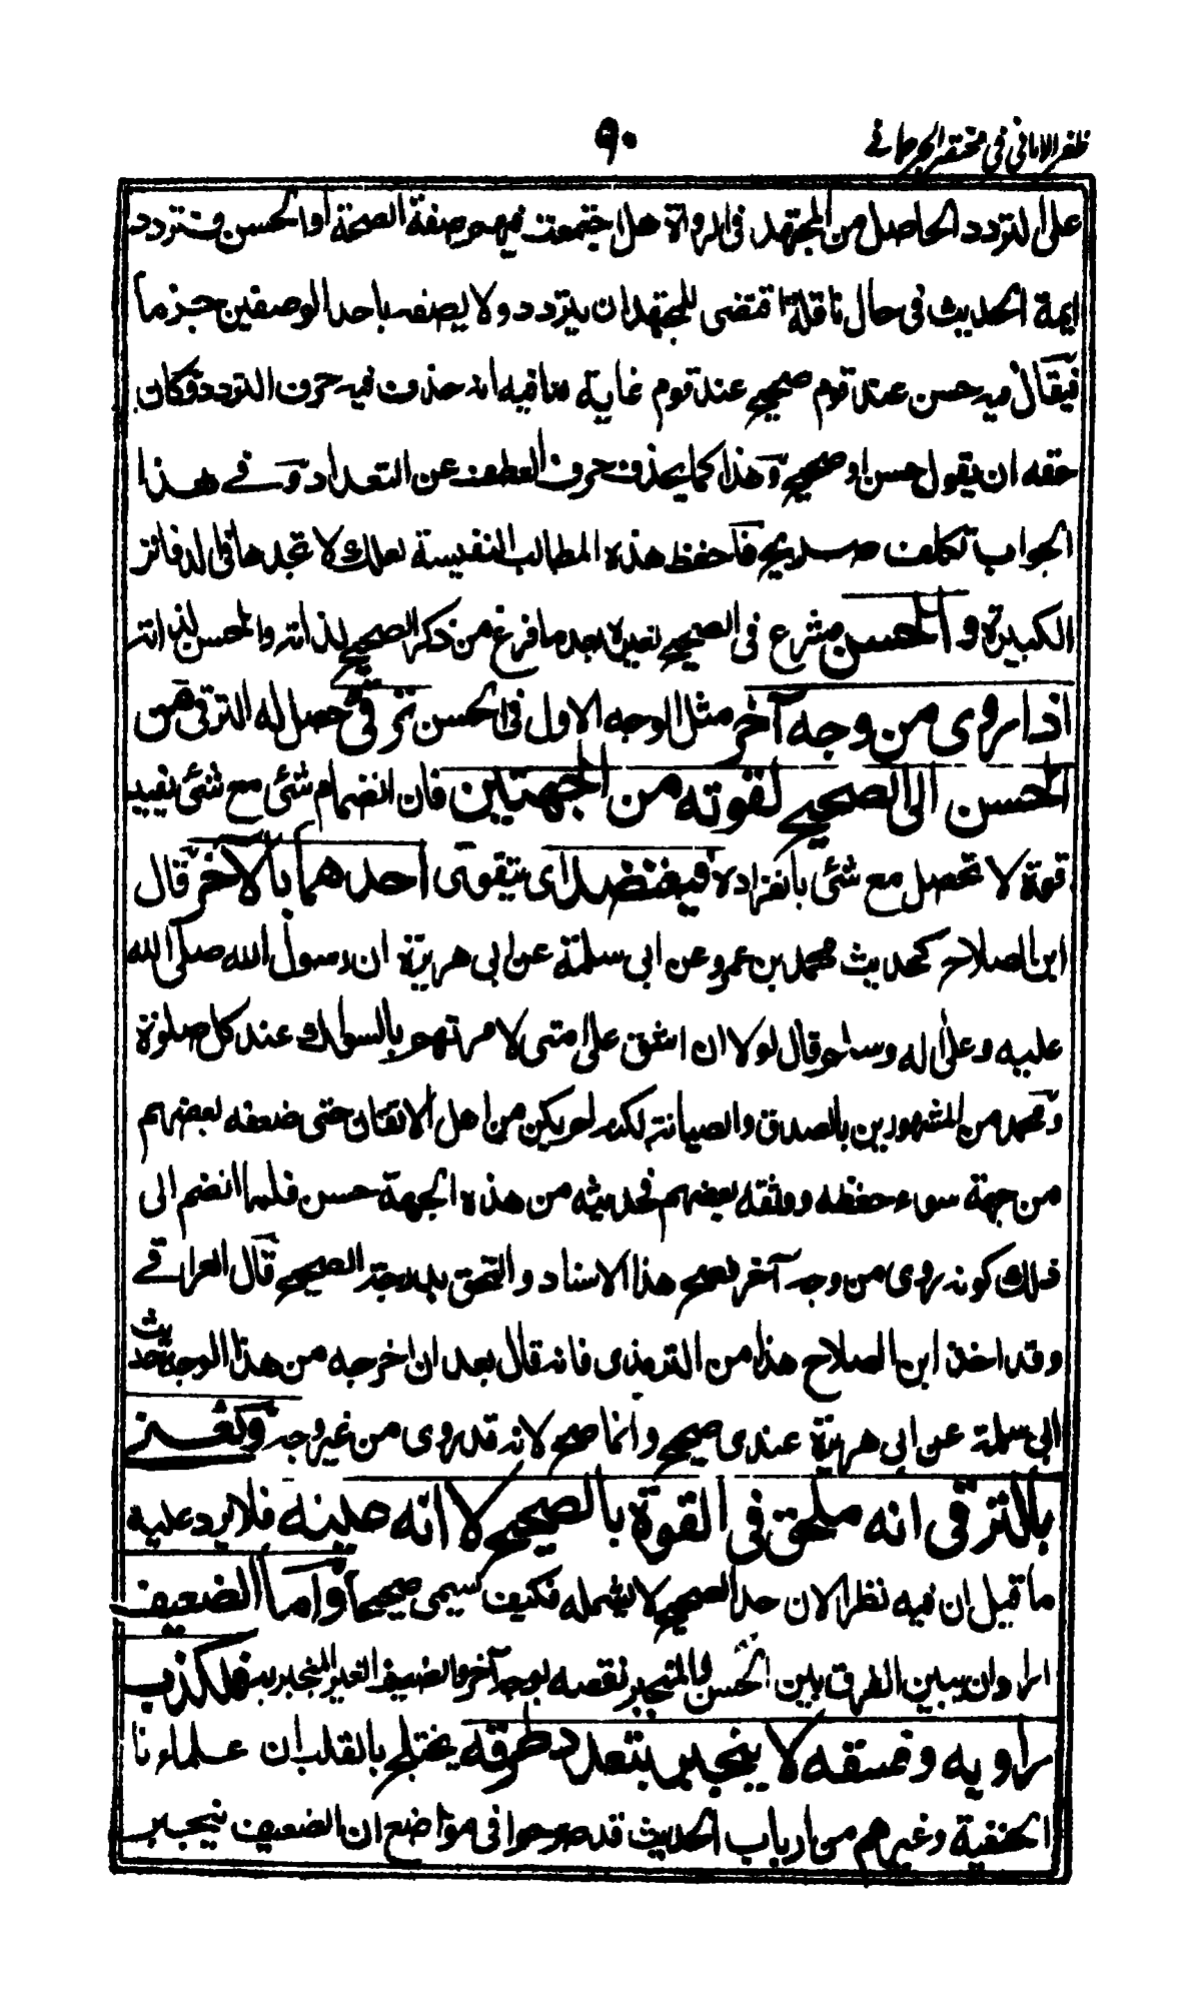 ظفر الامانی فی مختصر الجرجانے
٩٠
علی التردد الحاصل من المجتهد فی الرواة هل اجتمعت فیهم صفة الصحة او الحسن فتردد
ایمة الحدیث فی حال ناقلة اقتضی للمجتهد ان یتردد ولا یصفه باحد الوصفین جزما
فیقال فیه حسن عند قوم صحیح عند قوم غایة ما فیه انه حذف فیه حرف التردد وکان
حقه ان یقول حسن او صحیح وهذا کما یحذف حرف العطف عن التعداد وفے هذا
الجواب تکلف صریح فاحفظ هذه المطالب النفیسة لعلک لا تجدها فی الدفاتر
الکبیرة و الحسن شرع فی الصحیح لغیره بعد ما فرغ من ذکر الصحیح لذاته والحسن لذاته
اذا روی من وجه آخر مثل الوجه الاول فی الحسن ترقی حصل له الترقی من
الحسن الی الصحیح لقوته من الجهتین فان انضمام شئ مع شئ یفید
قوة لا تحصل مع شئ بانفراده فیعتضد ای یتقوی احدهما بالآخر قال
ابن الصلاح کحدیث محمد بن عمرو عن ابی سلمة عن ابی هریرة ان رسول الله صلی الله
علیه وعلی اله وسلم قال لولا ان اشق علی امتی لامرتهم بالسواک عند کل صلوة
ومحمد من المشهورین بالصدق والصیانة لکنه لم یکن من اهل الاتقان حتی ضعفه بعضهم
من جهة سوء حفظه ووثقه بعضهم فحدیثه من هذه الجهة حسن فلما انضم الی
ذلک کونه روی من وجه آخر صح هذا الاسناد والتحق بدرجة الصحیح قال العراقے
وقد اخذ ابن الصلاح هذا من الترمذی فانه قال بعد ان اخرجه من هذا الوجه حدیث
ابی سلمة عن ابی هریرة عندی صحیح وانما صح لانه قد روی من غیر وجه ونعنے
بالترقی انه ملحق فی القوة بالصحیح لا انه عینه فلا یرد علیه
ما قیل ان فیه نظرا لان حد الصحیح لا یشمله فکیف یسمی صحیحا واما الضعیف
اراد ان یبین الفرق بین الحسن والمنجبر نقصه بوجه آخر والضعیف الغیر المنجبر به فلکذب
راویه وفسقه لا ینجبر بتعدد طرقه یختلج بالقلب ان علماءنا
الحنفیة وغیرهم من ارباب الحدیث قد صرحوا فی مواضع ان الضعیف ینجبر